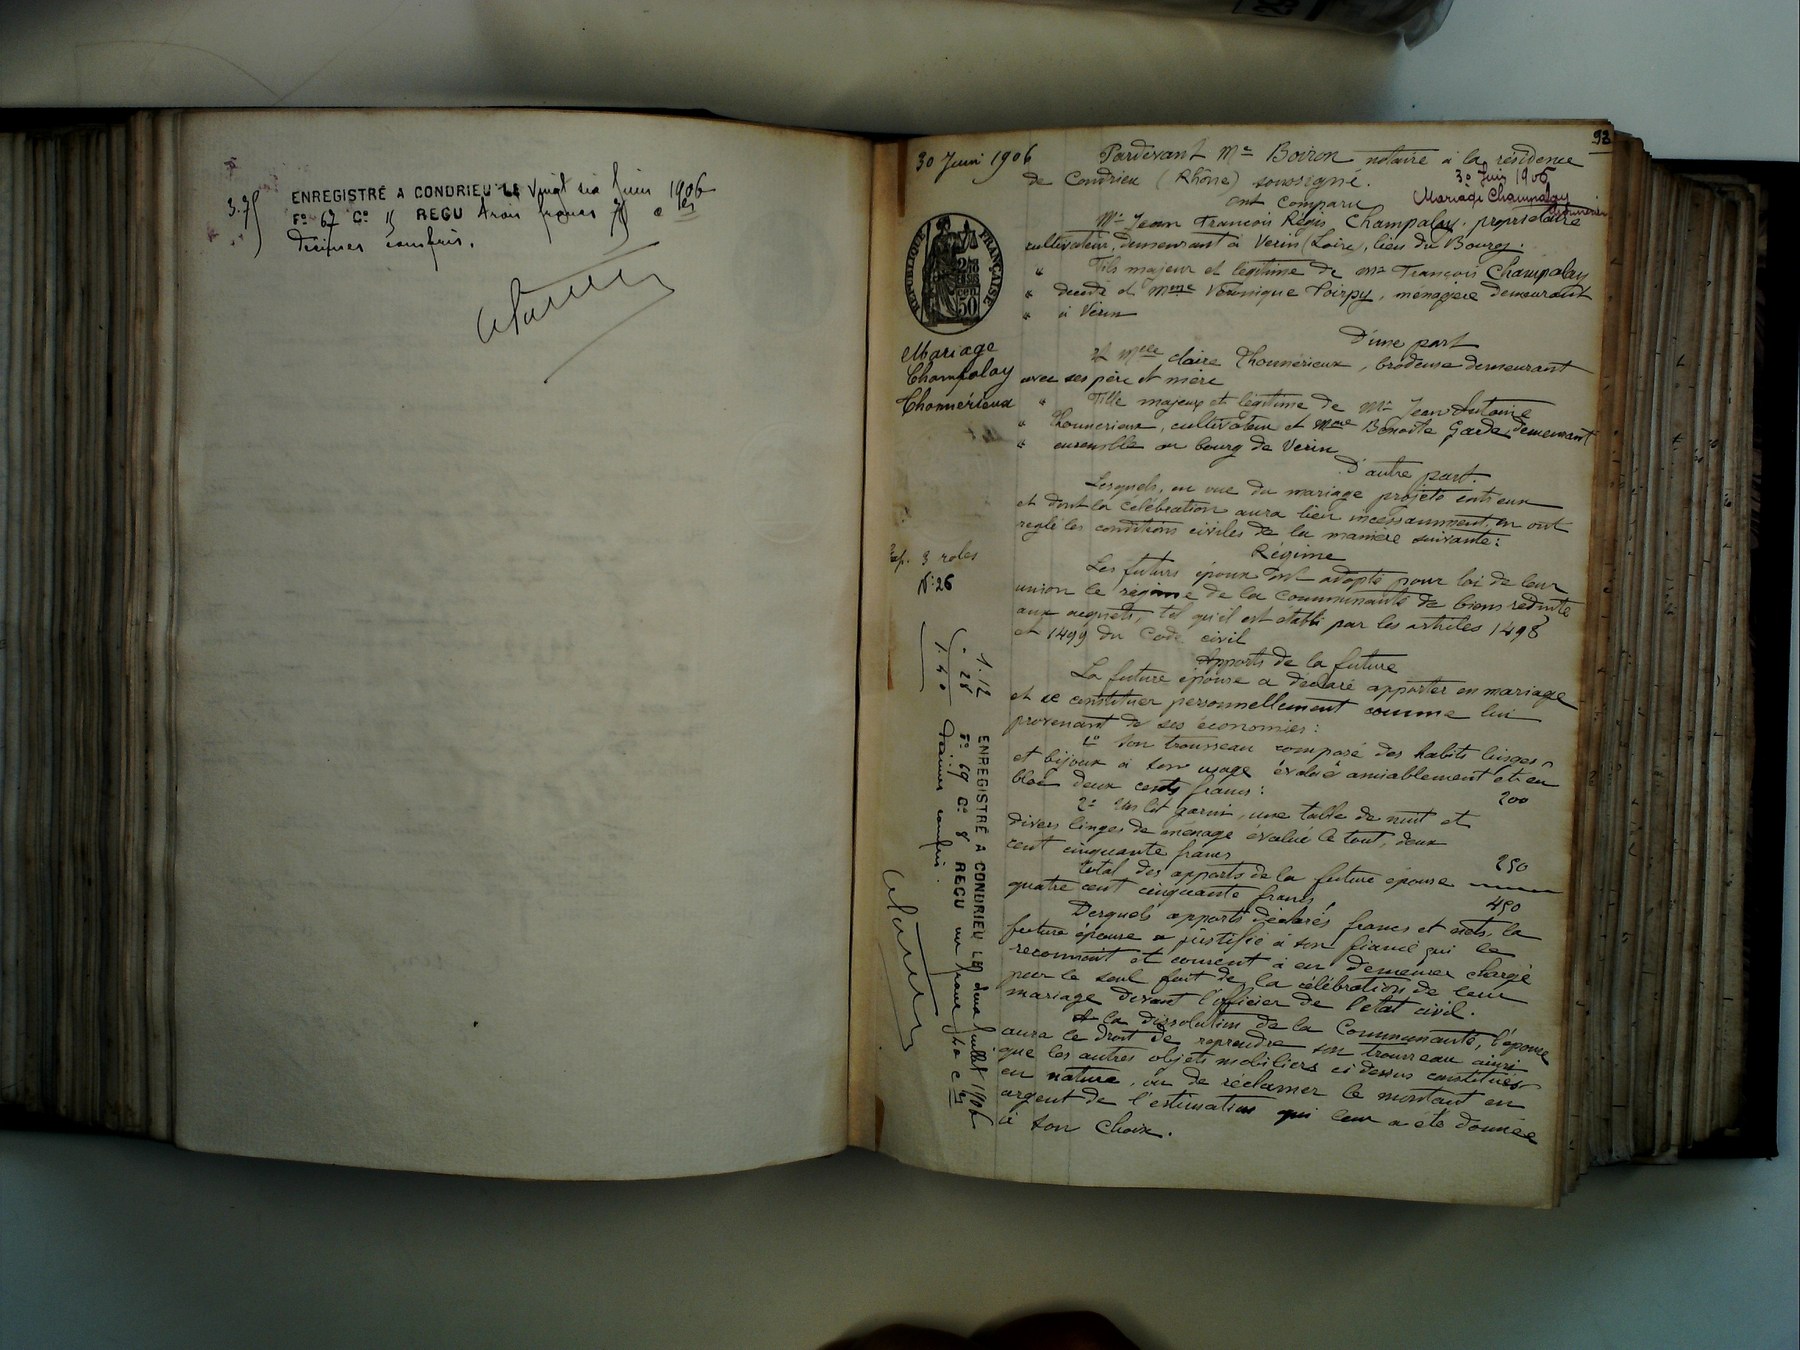 3.75
ENREGISTRÉ A CONDRIEU LE vingt six Juin 1906
F° 67 C° 5 REÇU trois francs 75 c
décimes compris.
93
30 Juin 1906
Pardevant Me Boiron notaire à la résidence
30 Juin 1906
de Condrieu (Rhône) soussigné.
Mariage Champalay
Thonnerieux
ont comparu
Mr Jean François Régis Champalay, propriétaire
cultivateur, demeurant à Verin (Loire), lieu du Bourg.
" Fils majeur et légitime de Mr François Champalay
" décédé et Mme Véronique Poirpy, ménagère demeurant
" à Verin
RÉPUBLIQUE FRANÇAISE
50
D'une part
Mariage
Champalay
Thonnérieux
Et Melle Claire Thonnérieux, brodeuse demeurant
avec ses père et mère
" Fille majeure et légitime de Mr Jean Antoine
" Thonnerieux, cultivateur et Mme Benoîte Garde, demeurant
" ensemble au bourg de Verin
D'autre part.
Lesquels, en vue du mariage projeté entre eux
et dont la célébration aura lieu incessamment, en ont
réglé les conditions civiles de la manière suivante:
Exp. 3 roles
N° 26
Régime
Les futurs époux ont adopté pour loi de leur
union le régime de la communauté de biens réduite
aux acquêts, tel qu'il est établi par les articles 1498
et 1499 du Code civil
Apports de la future
La future épouse a déclaré apporter en mariage
et se constituer personnellement comme lui
provenant de ses économies:
1° Son trousseau composé des habits linges
et bijoux à son usage évalué amiablement et en
bloc deux cents francs: 200
2° Un lit garni, une table de nuit et
divers linges de ménage évalué le tout, deux
cent cinquante francs 250
Total des apports de la future épouse
quatre cent cinquante francs 450
Desquels apports déclarés francs et nets, la
future épouse a justifié à son fiancé qui le
reconnait et consent à en demeurer chargé
par le seul fait de la célébration de leur
mariage devant l'officier de l'état civil.
A la dissolution de la Communauté, l'épouse
aura le droit de reprendre son trousseau ainsi
que les autres objets mobiliers ci dessus constitués
en nature, ou de réclamer le montant en
argent de l'estimation qui leur a été donnée
à son choix.
1.12
. 28
1.40
ENREGISTRÉ A CONDRIEU LE deux Juillet 1906
F° 69 C° 8 REÇU un franc 40 c
décimes compris.